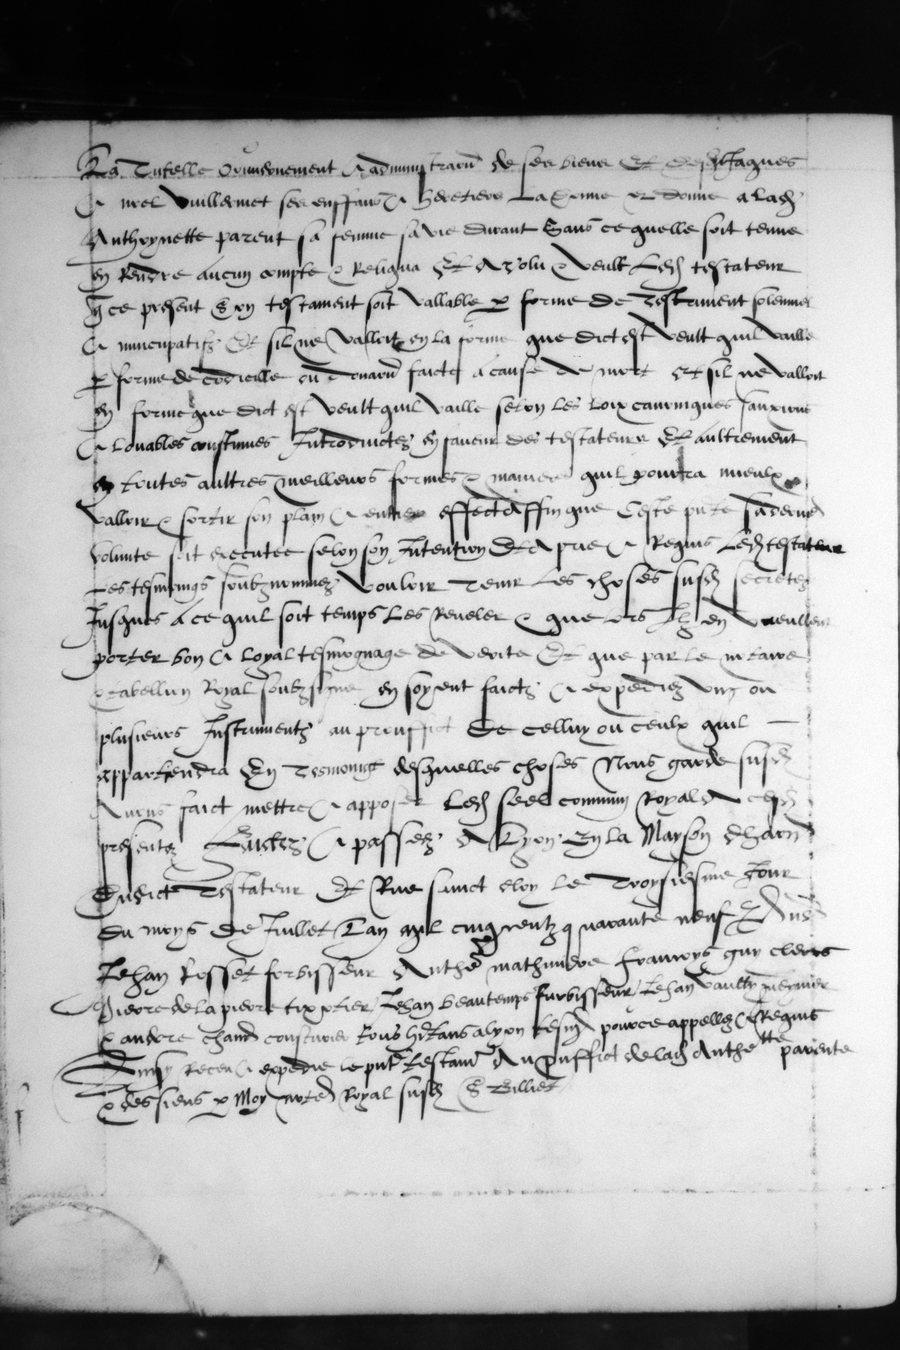 La Tutelle Gouvernement & administraon de ses biens Et desd Jaques
& noel Vuillermet ses enffans & heretiers La donne et donne a lad
Anthoynette parent sa femme sa vie durant Sans ce quelle soit tenue
en Rendre aucun compte & Reliqua Et a volu & veult Led testateur
q ce present Son testament soit vallable p forme de Testament solemnel
& nuncupatifz Et sil ne Valloit en la forme que dict est Veult quil vaille
p forme de codicille ou donaon faicte a cause de mort Et sil ne valloit
en forme que dict est veult quil vaille selon les Loix canoniques sanxions
& Louables coustumes Introduictes en faveur des testateurs Et aultrement
en toutes aultres meilleurs formes & manieres quil pourra mieulx
valloir & sortir son plain & entier effect Affin que Ceste pnte sa derne
volunte soit executee selon son Intention Et a prie & Requis Led testateur
Les tesmoings soubznommez Vouloir Tenir Les choses susd secretes
Jusques a ce quil soit temps Les Reveler & que lors Ilz en Vueullent
porter bon & loyal tesmoignage de Verite Et que par le notaire
& tabellion Royal soubzsigne en soyent faictz & expediez ung ou
plusieurs Instrumentz au prouffict de celluy ou ceulx quil
appartiendra En Tesmoing desquelles choses Nous garde susd
Avons faict mettre & apposer Led seel commun Royal A cesd
presentes Faictes & passees A Lyon En la Mayson dhabon
Dudict Testateur Et Rue sainct eloy Le Troysiesme Jour
Du moys de Juillet Lan mil cinq centz quarante neuf
Jehan Rosset forbisseur Anthe mathineve francoys guy clercs
Pierre de la pierre tixotier Jehan beautemps furbisseur Jehan Vaulty
& andre chand cousturier tous hitans a lyon tesmd pour ce appellez & Requis
Ainsy Receu & expedie le pnt testamt Au pruffict de lad Anthette parente
& des siens p Moy notre Royal susd S Billiet